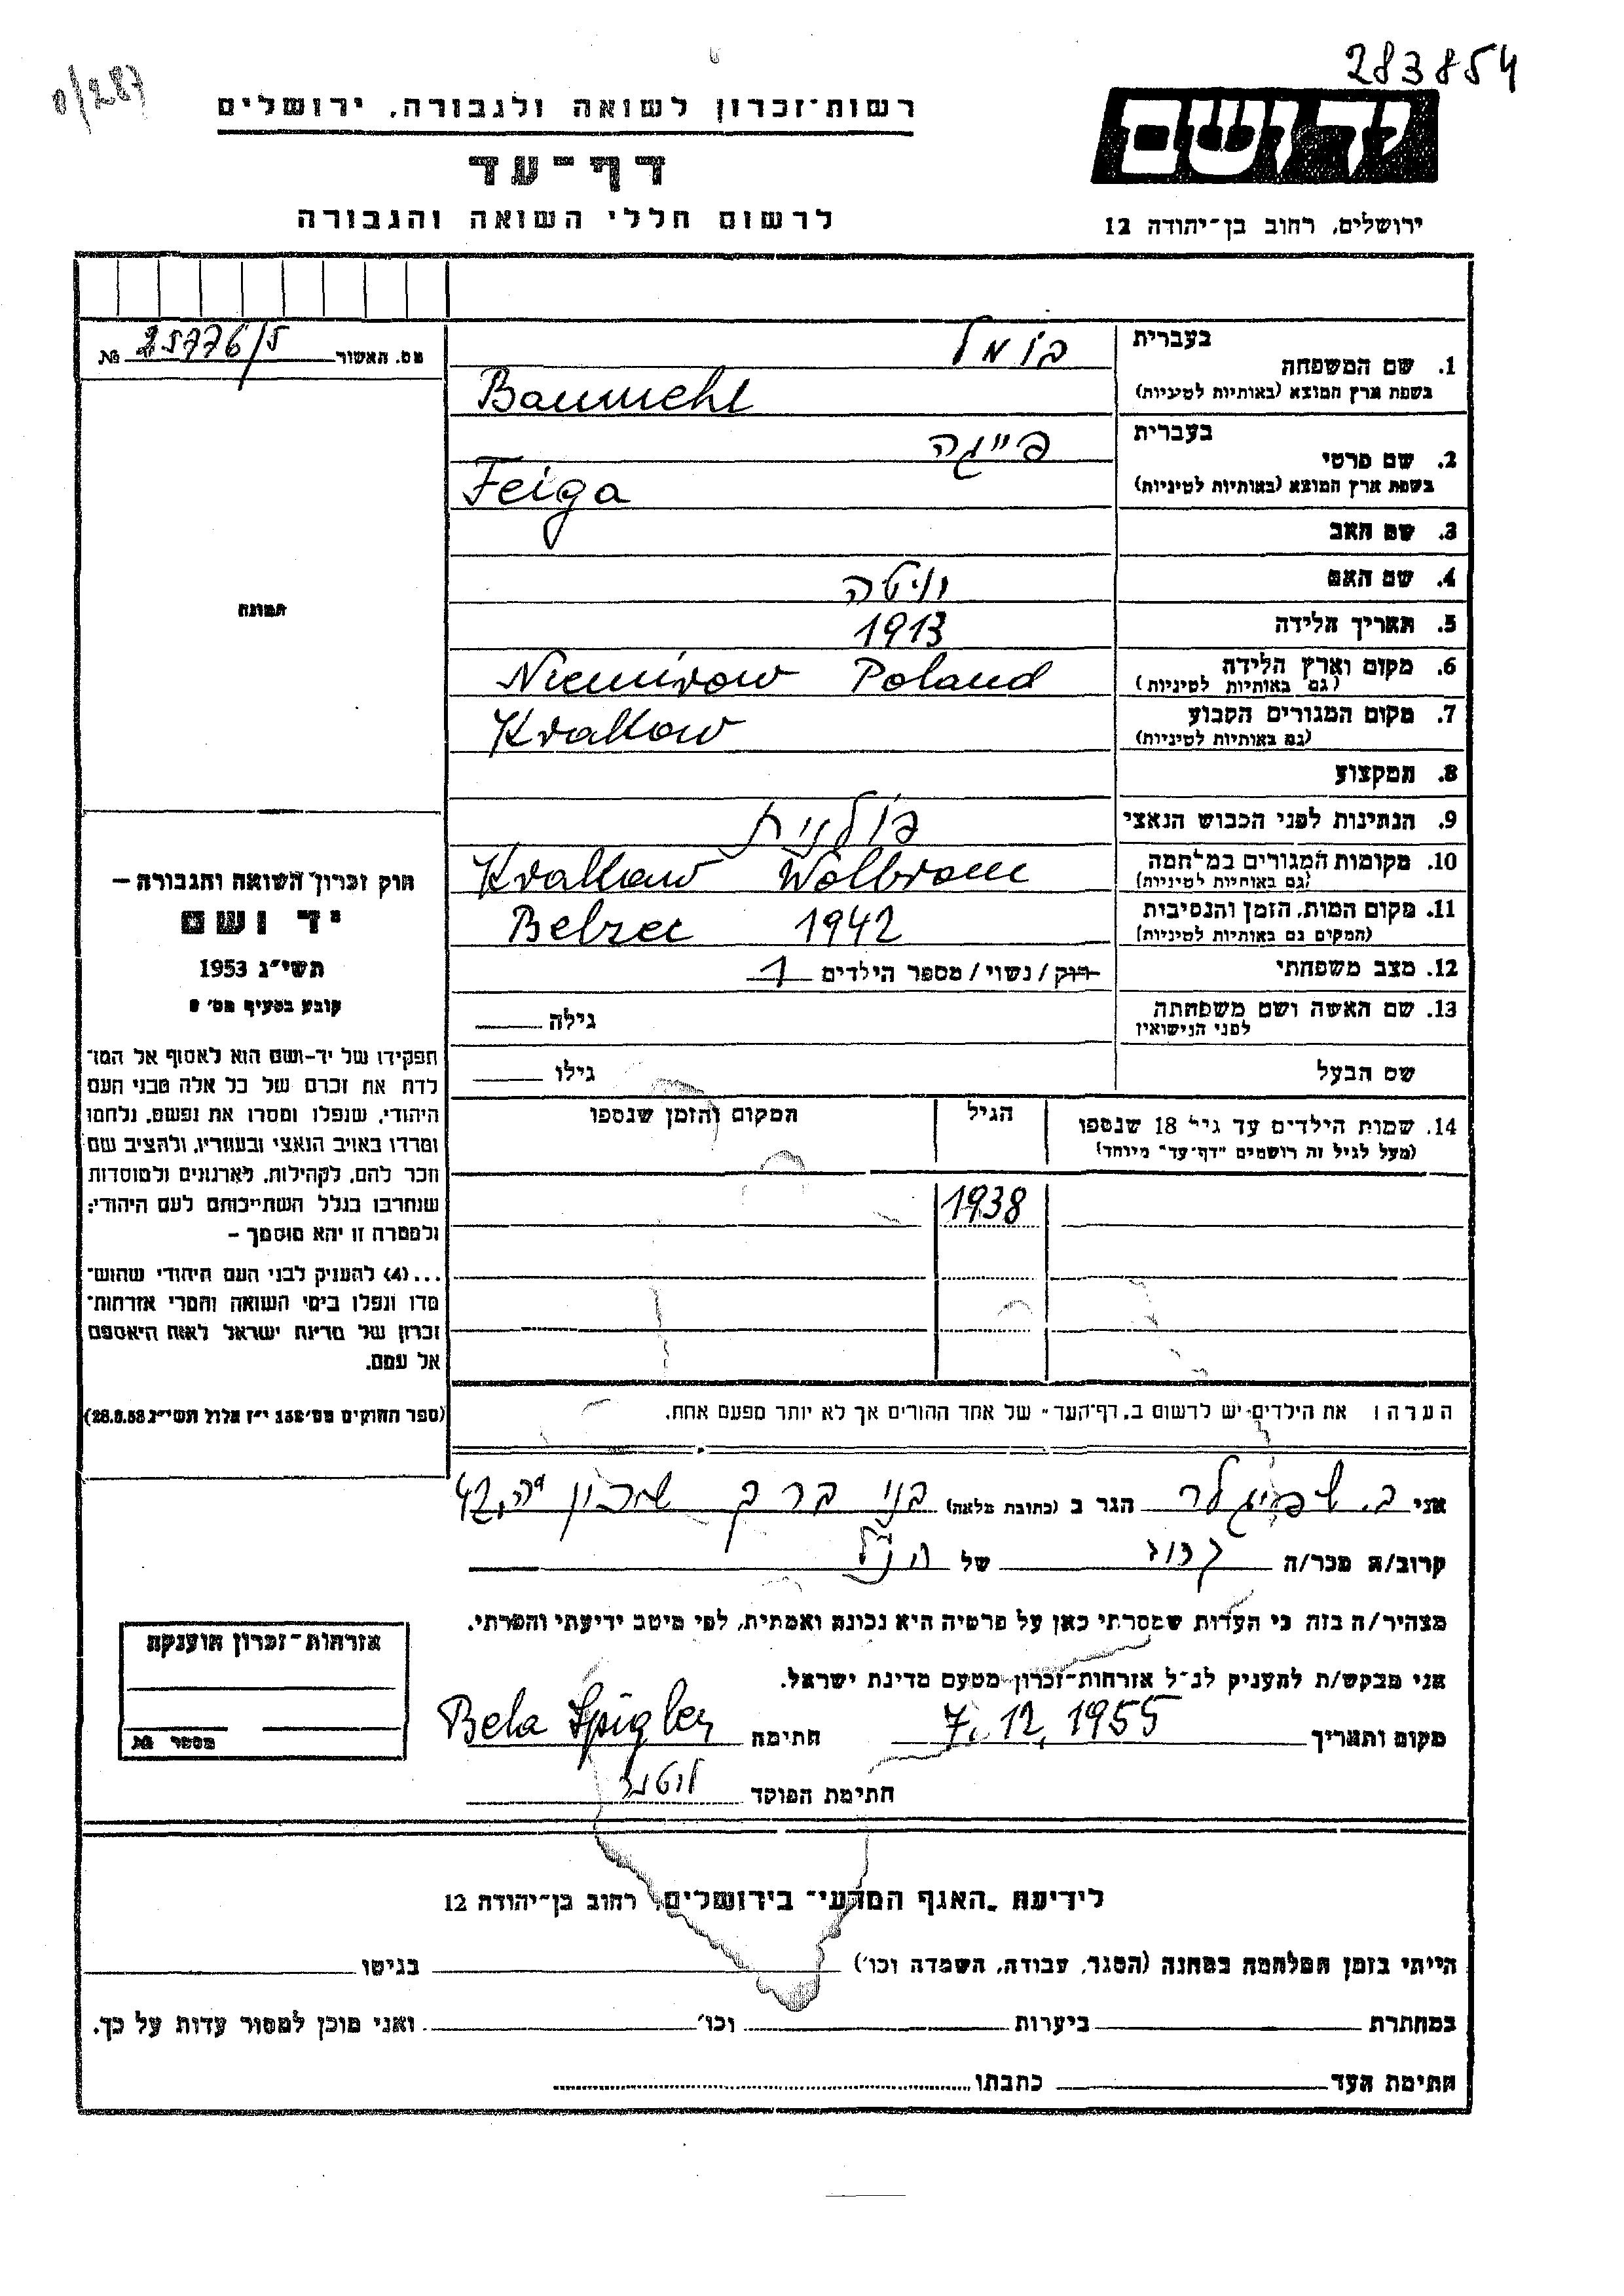 283854
0/287
רשות־זכרון לשואה ולגבורה, ירושלים
יד ושם
דף־עד
לרשום חללי השואה והגבורה
ירושלים, רחוב בן־יהודה 12
מס. האשור 25776/5 №
בעברית
1. שם המשפחה בומל
בשפת ארץ המוצא (באותיות לטיניות) Baumehl
בעברית
2. שם פרטי פייגה
בשפת ארץ המוצא (באותיות לטיניות) Feiga
3. שם האב
4. שם האם ויטה
5. תאריך הלידה 1913
6. מקום וארץ הלידה Niemirow Poland
(גם באותיות לטיניות)
7. מקום המגורים הקבוע Krakow
(גם באותיות לטיניות)
8. המקצוע
9. הנתינות לפני הכבוש הנאצי פולנית
10. מקומות המגורים במלחמה Krakow Wolbrom
(גם באותיות לטיניות)
11. מקום המות, הזמן והנסיבות Belzec 1942
(המקום גם באותיות לטיניות)
12. מצב משפחתי רוק / נשוי / מספר הילדים 1
13. שם האשה ושם משפחתה גילה
לפני הנישואין
שם הבעל גילו
14. שמות הילדים עד גיל 18 שנספו הגיל המקום והזמן שנספו
(מעל לגיל זה רושמים "דף־עד" מיוחד)
1938
הערה: את הילדים יש לרשום ב„דף־העד" של אחד ההורים אך לא יותר מפעם אחת.
תמונה
חוק זכרון השואה והגבורה –
יד ושם
תשי״ג 1953
קובע בסעיף מס׳
תפקידו של יד־ושם הוא לאסוף אל המו־
לדת את זכרם של כל אלה מבני העם
היהודי, שנפלו ומסרו את נפשם, נלחמו
ומרדו באויב הנאצי ובעוזריו, ולהציב שם
וזכר להם, לקהילות, לארגונים ולמוסדות
שנחרבו בגלל השתייכותם לעם היהודי;
ולמטרה זו יהא מוסמך –
...(4) להעניק לבני העם היהודי שהוש־
מדו ונפלו בימי השואה והמרי אזרחות־
זכרון של מדינת ישראל לאות היאספם
אל עמם.
(ספר החוקים מס׳ 132 י״ז אלול תשי״ג
אני ב. שפיגלר הגר ב (כתובת מלאה) בני ברק שכון ה, 42
קרוב/ה מכר/ה קרוב של הנ״ל
מצהיר/ה בזה כי העדות שמסרתי כאן על פרטיה היא נכונה ואמתית, לפי מיטב ידיעתי והכרתי.
אני מבקש/ת להעניק לנ״ל אזרחות־זכרון מטעם מדינת ישראל.
מקום ותאריך 7. 12, 1955 חתימה Bela Spigler
חתימת הפוקד
אזרחות־זכרון הוענקה
מספר №
לידיעת „האגף המדעי" בירושלים, רחוב בן־יהודה 12
הייתי בזמן המלחמה במחנה (הסגר, עבודה, השמדה וכו׳) בגיטו
במחתרת ביערות וכו׳ ואני מוכן למסור עדות על כך.
חתימת העד כתבתו